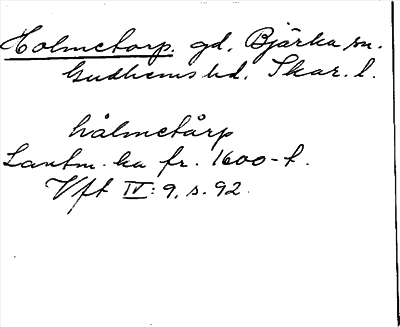 Holmetorp. gd, Bjärka sn.
Gudhems hd, Skar. l.
hålmetårp
Lantm. ka fr. 1600-t.
Vft IV: 9, s. 92.